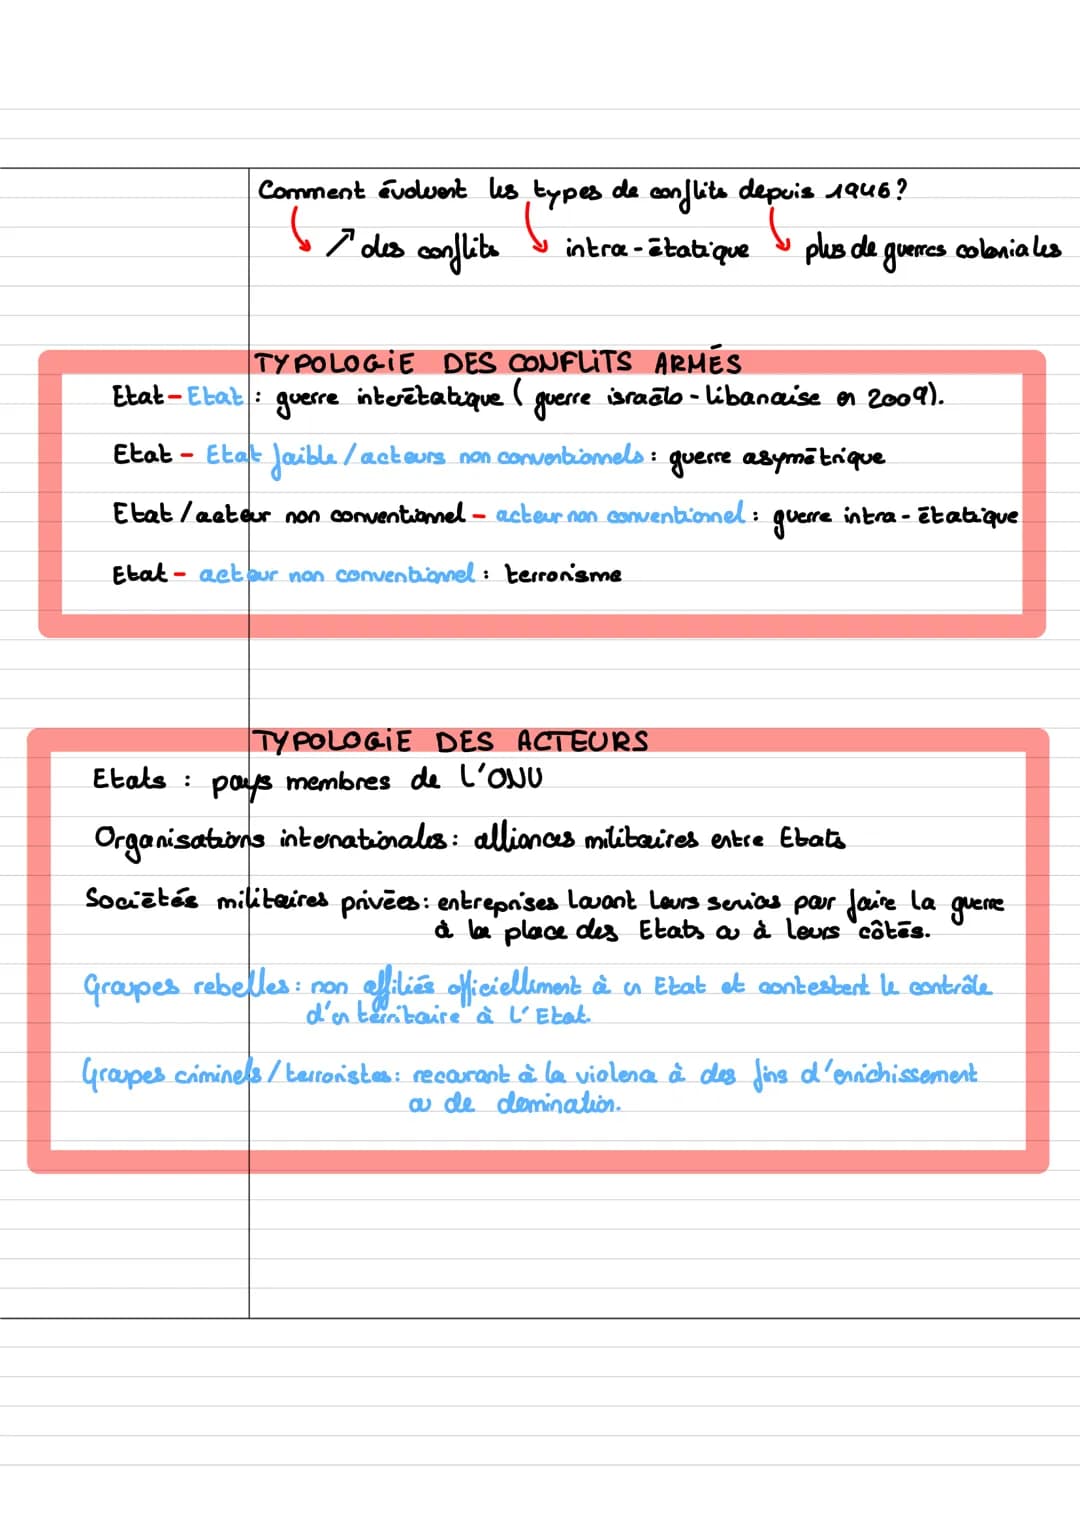 Comment évoluent les types de conflits depuis 1946?
↗ des conflits intra-étatique plus de guerres coloniales
TYPOLOGIE DES CONFLITS ARMÉS
Etat - Etat : guerre interétatique ( guerre israélo-libanaise en 2009).
Etat - Etat faible / acteurs non conventionnels : guerre asymétrique
Etat / acteur non conventionnel - acteur non conventionnel : guerre intra-étatique
Etat - acteur non conventionnel : terrorisme
TYPOLOGIE DES ACTEURS
Etats : pays membres de l'ONU
Organisations internationales : alliances militaires entre Etats
Sociétés militaires privées : entreprises louant leurs services pour faire la guerre
à la place des Etats ou à leurs côtés.
Groupes rebelles : non affiliés officiellement à un Etat et contestent le contrôle
d'un territoire à l'Etat.
Groupes criminels / terroristes : recourant à la violence à des fins d'enrichissement
ou de domination.